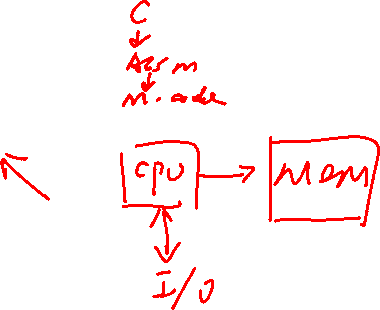 C
Assm
M. code
CPU
MEM
I/O